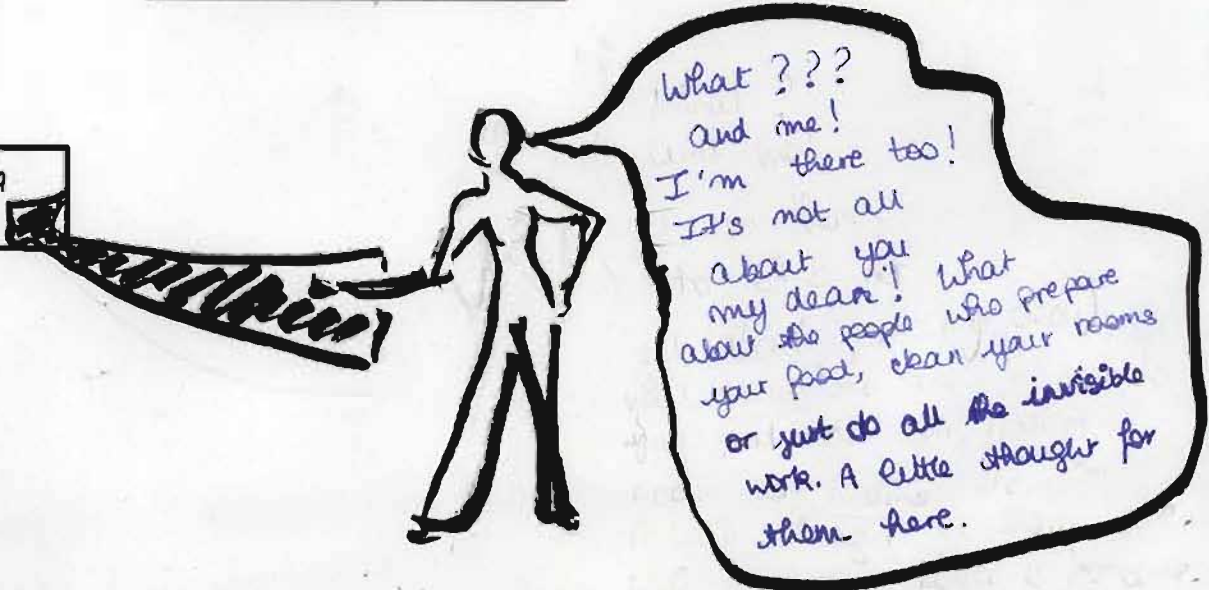 What ???
and me!
I'm there too!
It's not all
about you
my dear! What
about the people who prepare
your food, clean your rooms
or just do all the invisible
work. A little thought for
them here.